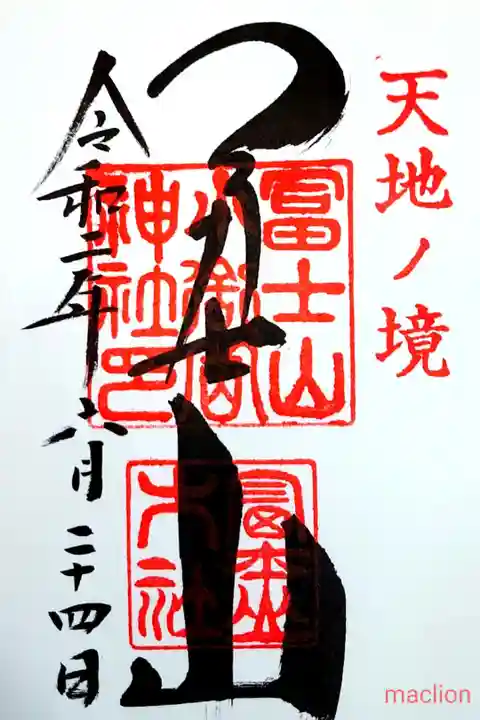 天地ノ境
冨士山
富士山
小御嶽
神社印
令和二年 六月二十四日
maclion